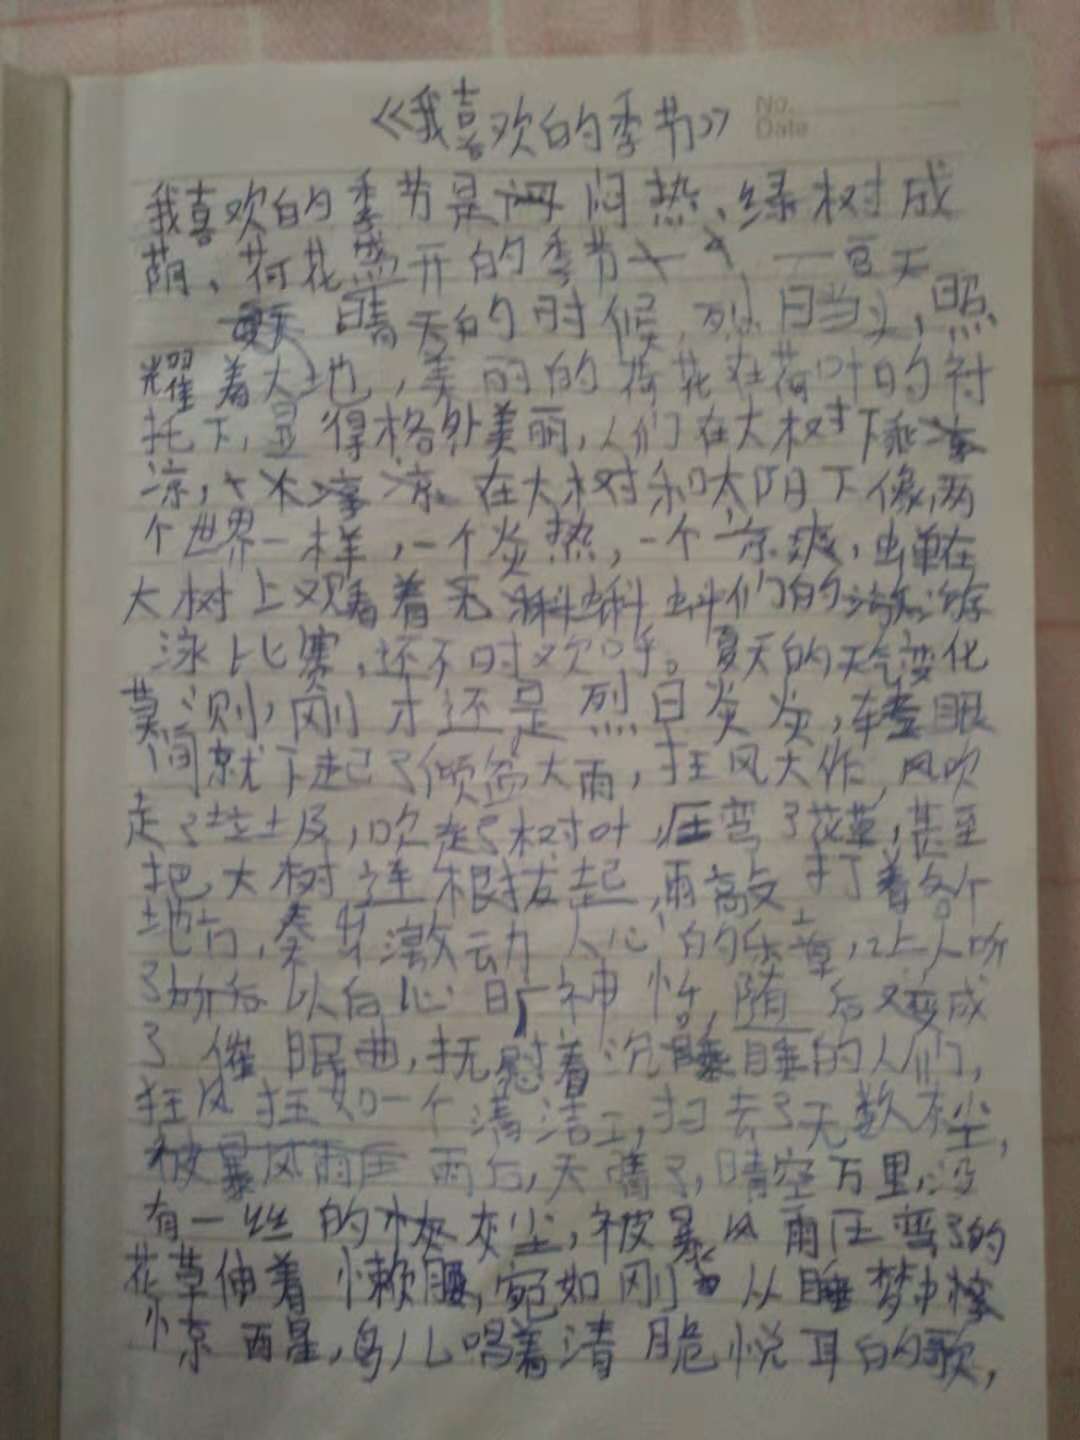 《我喜欢的季节》
No.
Date
我喜欢的季节是闷热、绿树成
荫、荷花盛开的季节——夏天
晴天的时候,烈日当头,照
耀着大地,美丽的荷花在荷叶的衬
托下,显得格外美丽,人们在大树下乘
凉,在大树和太阳下像两
个世界一样,一个炎热,一个凉爽,蝉在
大树上观看着无蝌蚪们的游
泳比赛,还不时欢呼。夏天的天气变化
莫测,刚才还是烈日炎炎,转眼
间就下起了倾盆大雨,狂风大作,风吹
走了垃圾,吹走了树叶,压弯了花草,甚至
把大树连根拔起,雨敲打着各个
地方,奏出激动人心的乐章,让人听
了听后以后心旷神怡,随后又变成
了催眠曲,抚慰着沉睡的人们,
狂风犹如一个清洁工,扫去了无数灰尘,
被暴风雨压雨后,天晴了,晴空万里,没
有一丝的灰尘,被暴风雨压弯了的
花草伸着懒腰,宛如刚从睡梦中
惊醒,鸟儿唱着清脆悦耳的歌,